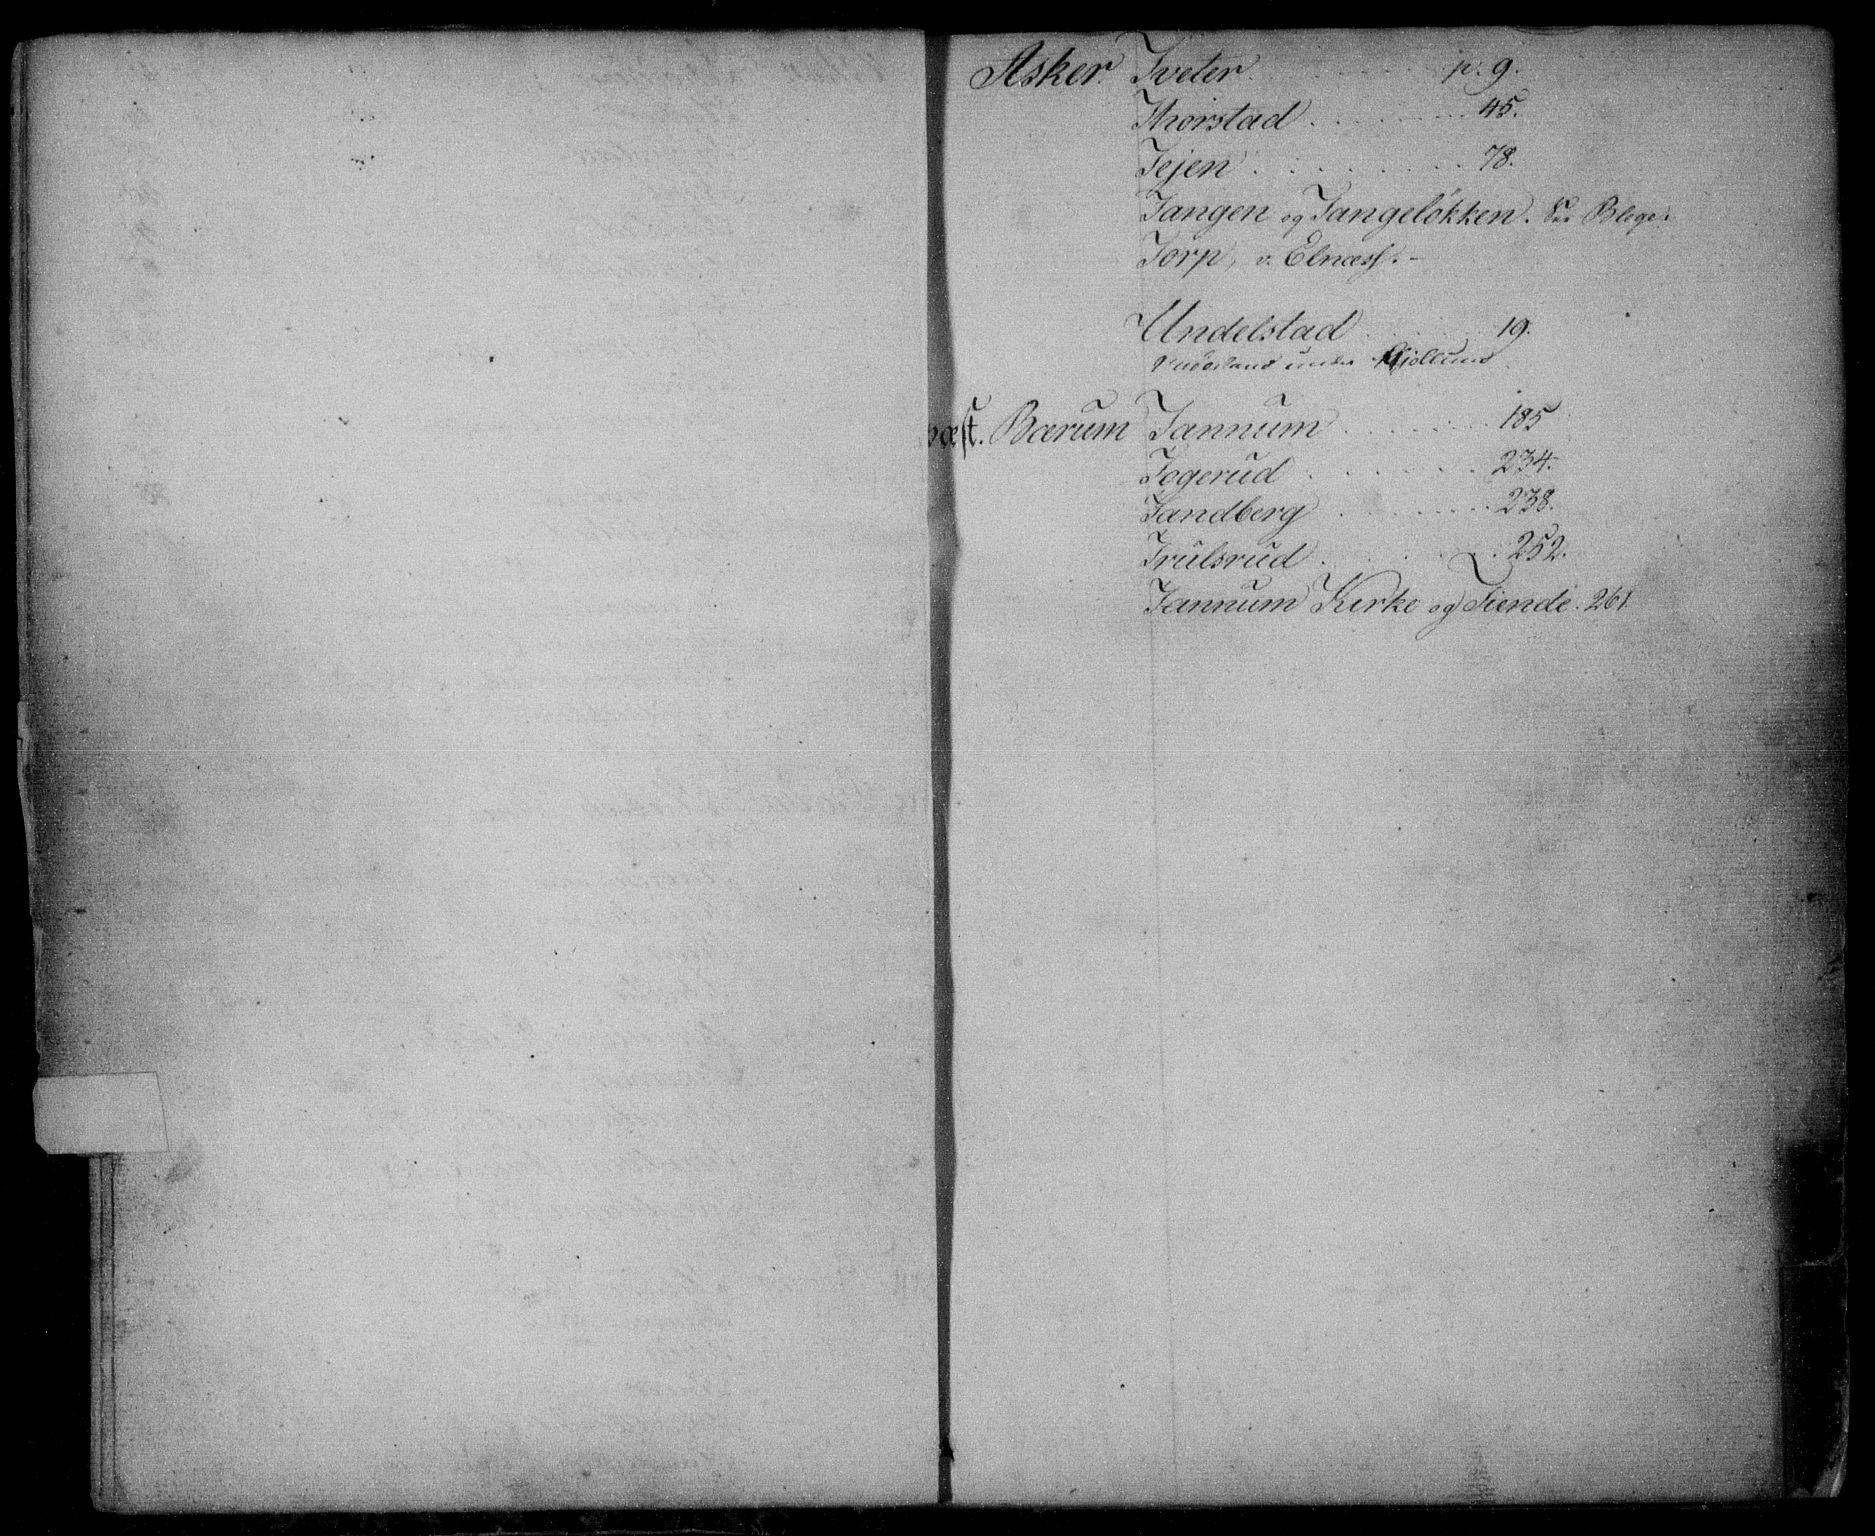 Asker. Tveter . . . . . . . p. 9.
Thorstad . . . . . . . 45.
Tejen . . . . . . . 78.
Tangen og Tangeløkken.
Torp, v. Elnæss. –
Undelstad . . . . . 19.
under
væst. Bærum Tannum . . . . . . 185
Togerud . . . . . . 234.
Tandberg . . . . . . . 238.
Trulsrud . . . . . . 252.
Tannum Kirke og Tiende. 261.